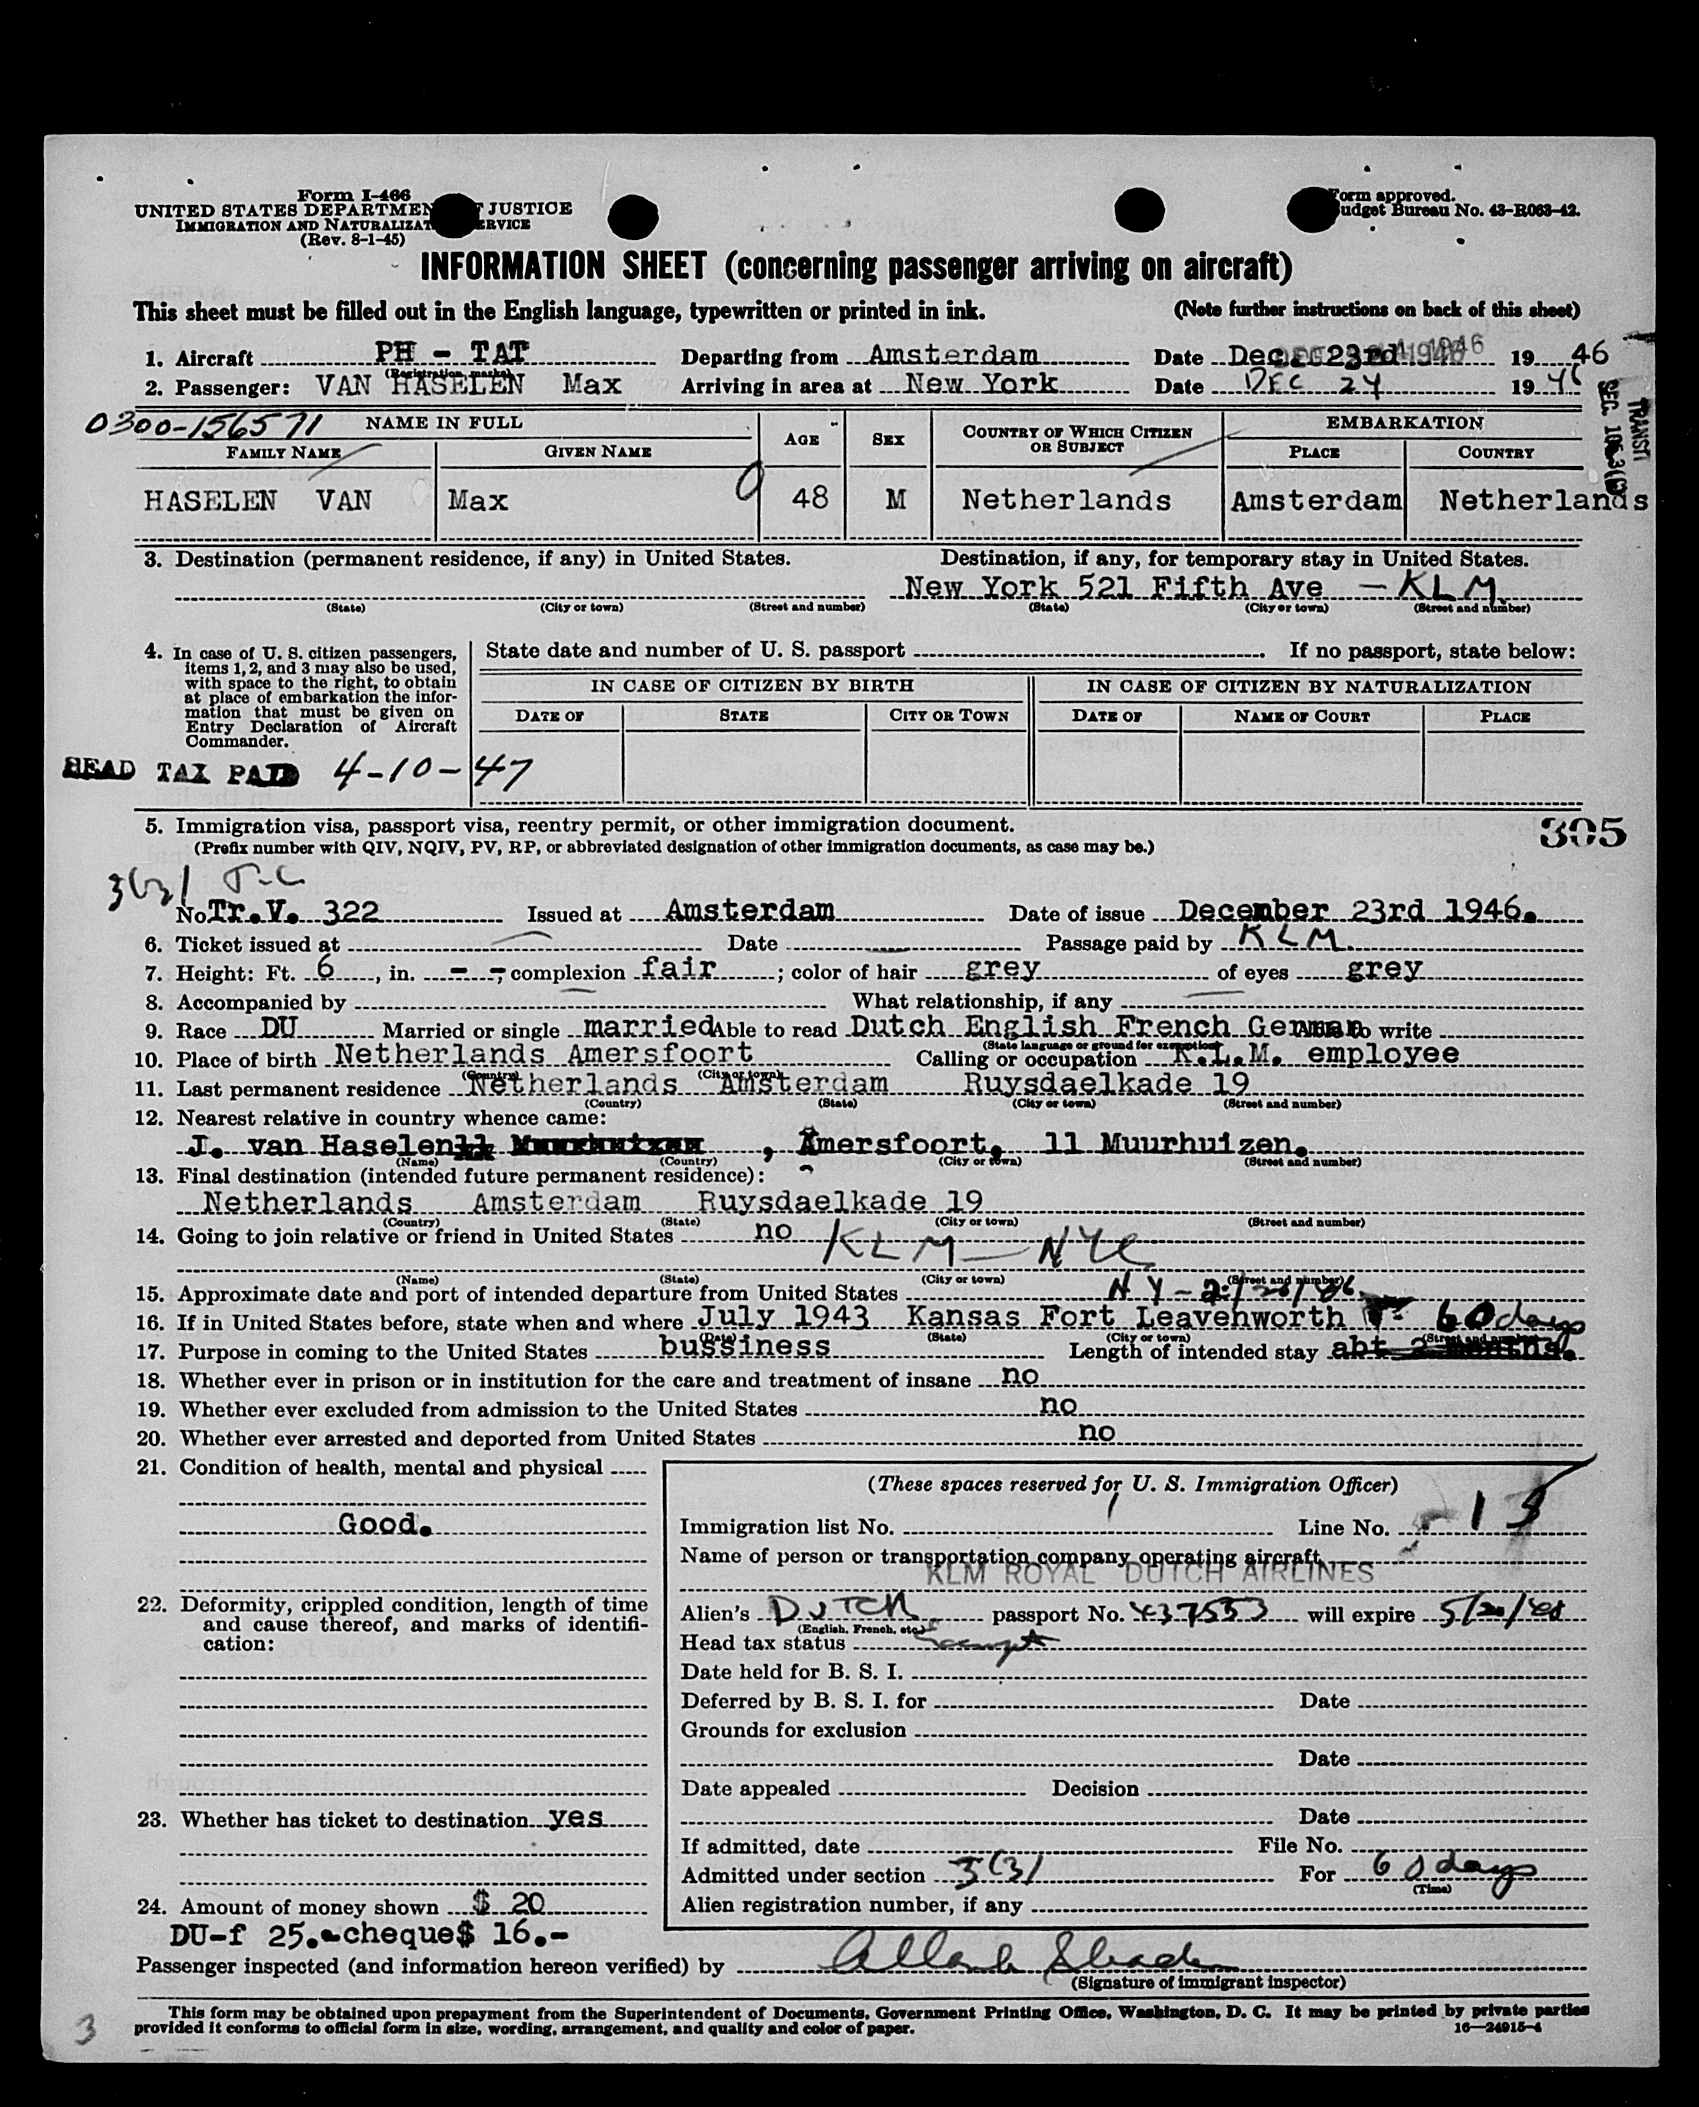 Form I-466
UNITED STATES DEPARTMENT JUSTICE
IMMIGRATION AND NATURALIZAT ERVICE
(Rev. 8-1-45)
Form approved.
Budget Bureau No. 43-R063-42.
INFORMATION SHEET (concerning passenger arriving on aircraft)
This sheet must be filled out in the English language, typewritten or printed in ink. (Note further instructions on back of this sheet)
1. Aircraft PH - TAT Departing from Amsterdam Date Dec. 23rd 1946
(Registration marks)
2. Passenger: VAN HASELEN Max Arriving in area at New York Date DEC 24 1946
TRANSIT
SEC.
0300-156571 NAME IN FULL AGE SEX COUNTRY OF WHICH CITIZEN OR SUBJECT EMBARKATION
FAMILY NAME GIVEN NAME PLACE COUNTRY
HASELEN VAN Max 48 M Netherlands Amsterdam Netherlands
3. Destination (permanent residence, if any) in United States. Destination, if any, for temporary stay in United States.
New York 521 Fifth Ave — KLM
(State) (City or town) (Street and number) (State) (City or town) (Street and number)
4. In case of U. S. citizen passengers, items 1, 2, and 3 may also be used, with space to the right, to obtain at place of embarkation the information that must be given on Entry Declaration of Aircraft Commander.
State date and number of U. S. passport If no passport, state below:
IN CASE OF CITIZEN BY BIRTH IN CASE OF CITIZEN BY NATURALIZATION
DATE OF STATE CITY OR TOWN DATE OF NAME OF COURT PLACE
HEAD TAX PAID 4-10-47
5. Immigration visa, passport visa, reentry permit, or other immigration document. 305
(Prefix number with QIV, NQIV, PV, RP, or abbreviated designation of other immigration documents, as case may be.)
No. Tr.V. 322 Issued at Amsterdam Date of issue December 23rd 1946.
6. Ticket issued at Date Passage paid by KLM
7. Height: Ft. 6, in. - -; complexion fair; color of hair grey of eyes grey
8. Accompanied by What relationship, if any
9. Race DU Married or single married Able to read Dutch English French German Able to write
(State language or ground for exemption)
10. Place of birth Netherlands Amersfoort Calling or occupation K.L.M. employee
(Country) (City or town)
11. Last permanent residence Netherlands Amsterdam Ruysdaelkade 19
(Country) (State) (City or town) (Street and number)
12. Nearest relative in country whence came:
J. van Haselen , Amersfoort, 11 Muurhuizen.
(Name) (Country) (City or town) (Street and number)
13. Final destination (intended future permanent residence):
Netherlands Amsterdam Ruysdaelkade 19
(Country) (State) (City or town) (Street and number)
14. Going to join relative or friend in United States no KLM — NYC
(Name) (State) (City or town) (Street and number)
15. Approximate date and port of intended departure from United States NY
16. If in United States before, state when and where July 1943 Kansas Fort Leavenworth 60 days
(Date) (State) (City or town) (Street and number)
17. Purpose in coming to the United States bussiness Length of intended stay abt 2 months.
18. Whether ever in prison or in institution for the care and treatment of insane no
19. Whether ever excluded from admission to the United States no
20. Whether ever arrested and deported from United States no
21. Condition of health, mental and physical
Good.
22. Deformity, crippled condition, length of time and cause thereof, and marks of identification:
23. Whether has ticket to destination yes
24. Amount of money shown $ 20
DU-f 25.-cheque$ 16.-
(These spaces reserved for U. S. Immigration Officer)
Immigration list No. 1 Line No.
Name of person or transportation company operating aircraft
KLM ROYAL DUTCH AIRLINES
Alien's DUTCH passport No. will expire
(English, French, etc.)
Head tax status
Date held for B. S. I.
Deferred by B. S. I. for Date
Grounds for exclusion
Date
Date appealed Decision
Date
If admitted, date File No.
Admitted under section 3(3) For 60 days
(Time)
Alien registration number, if any
Passenger inspected (and information hereon verified) by
(Signature of immigrant inspector)
This form may be obtained upon prepayment from the Superintendent of Documents, Government Printing Office, Washington, D. C. It may be printed by private parties
provided it conforms to official form in size, wording, arrangement, and quality and color of paper. 16—24915-4
3